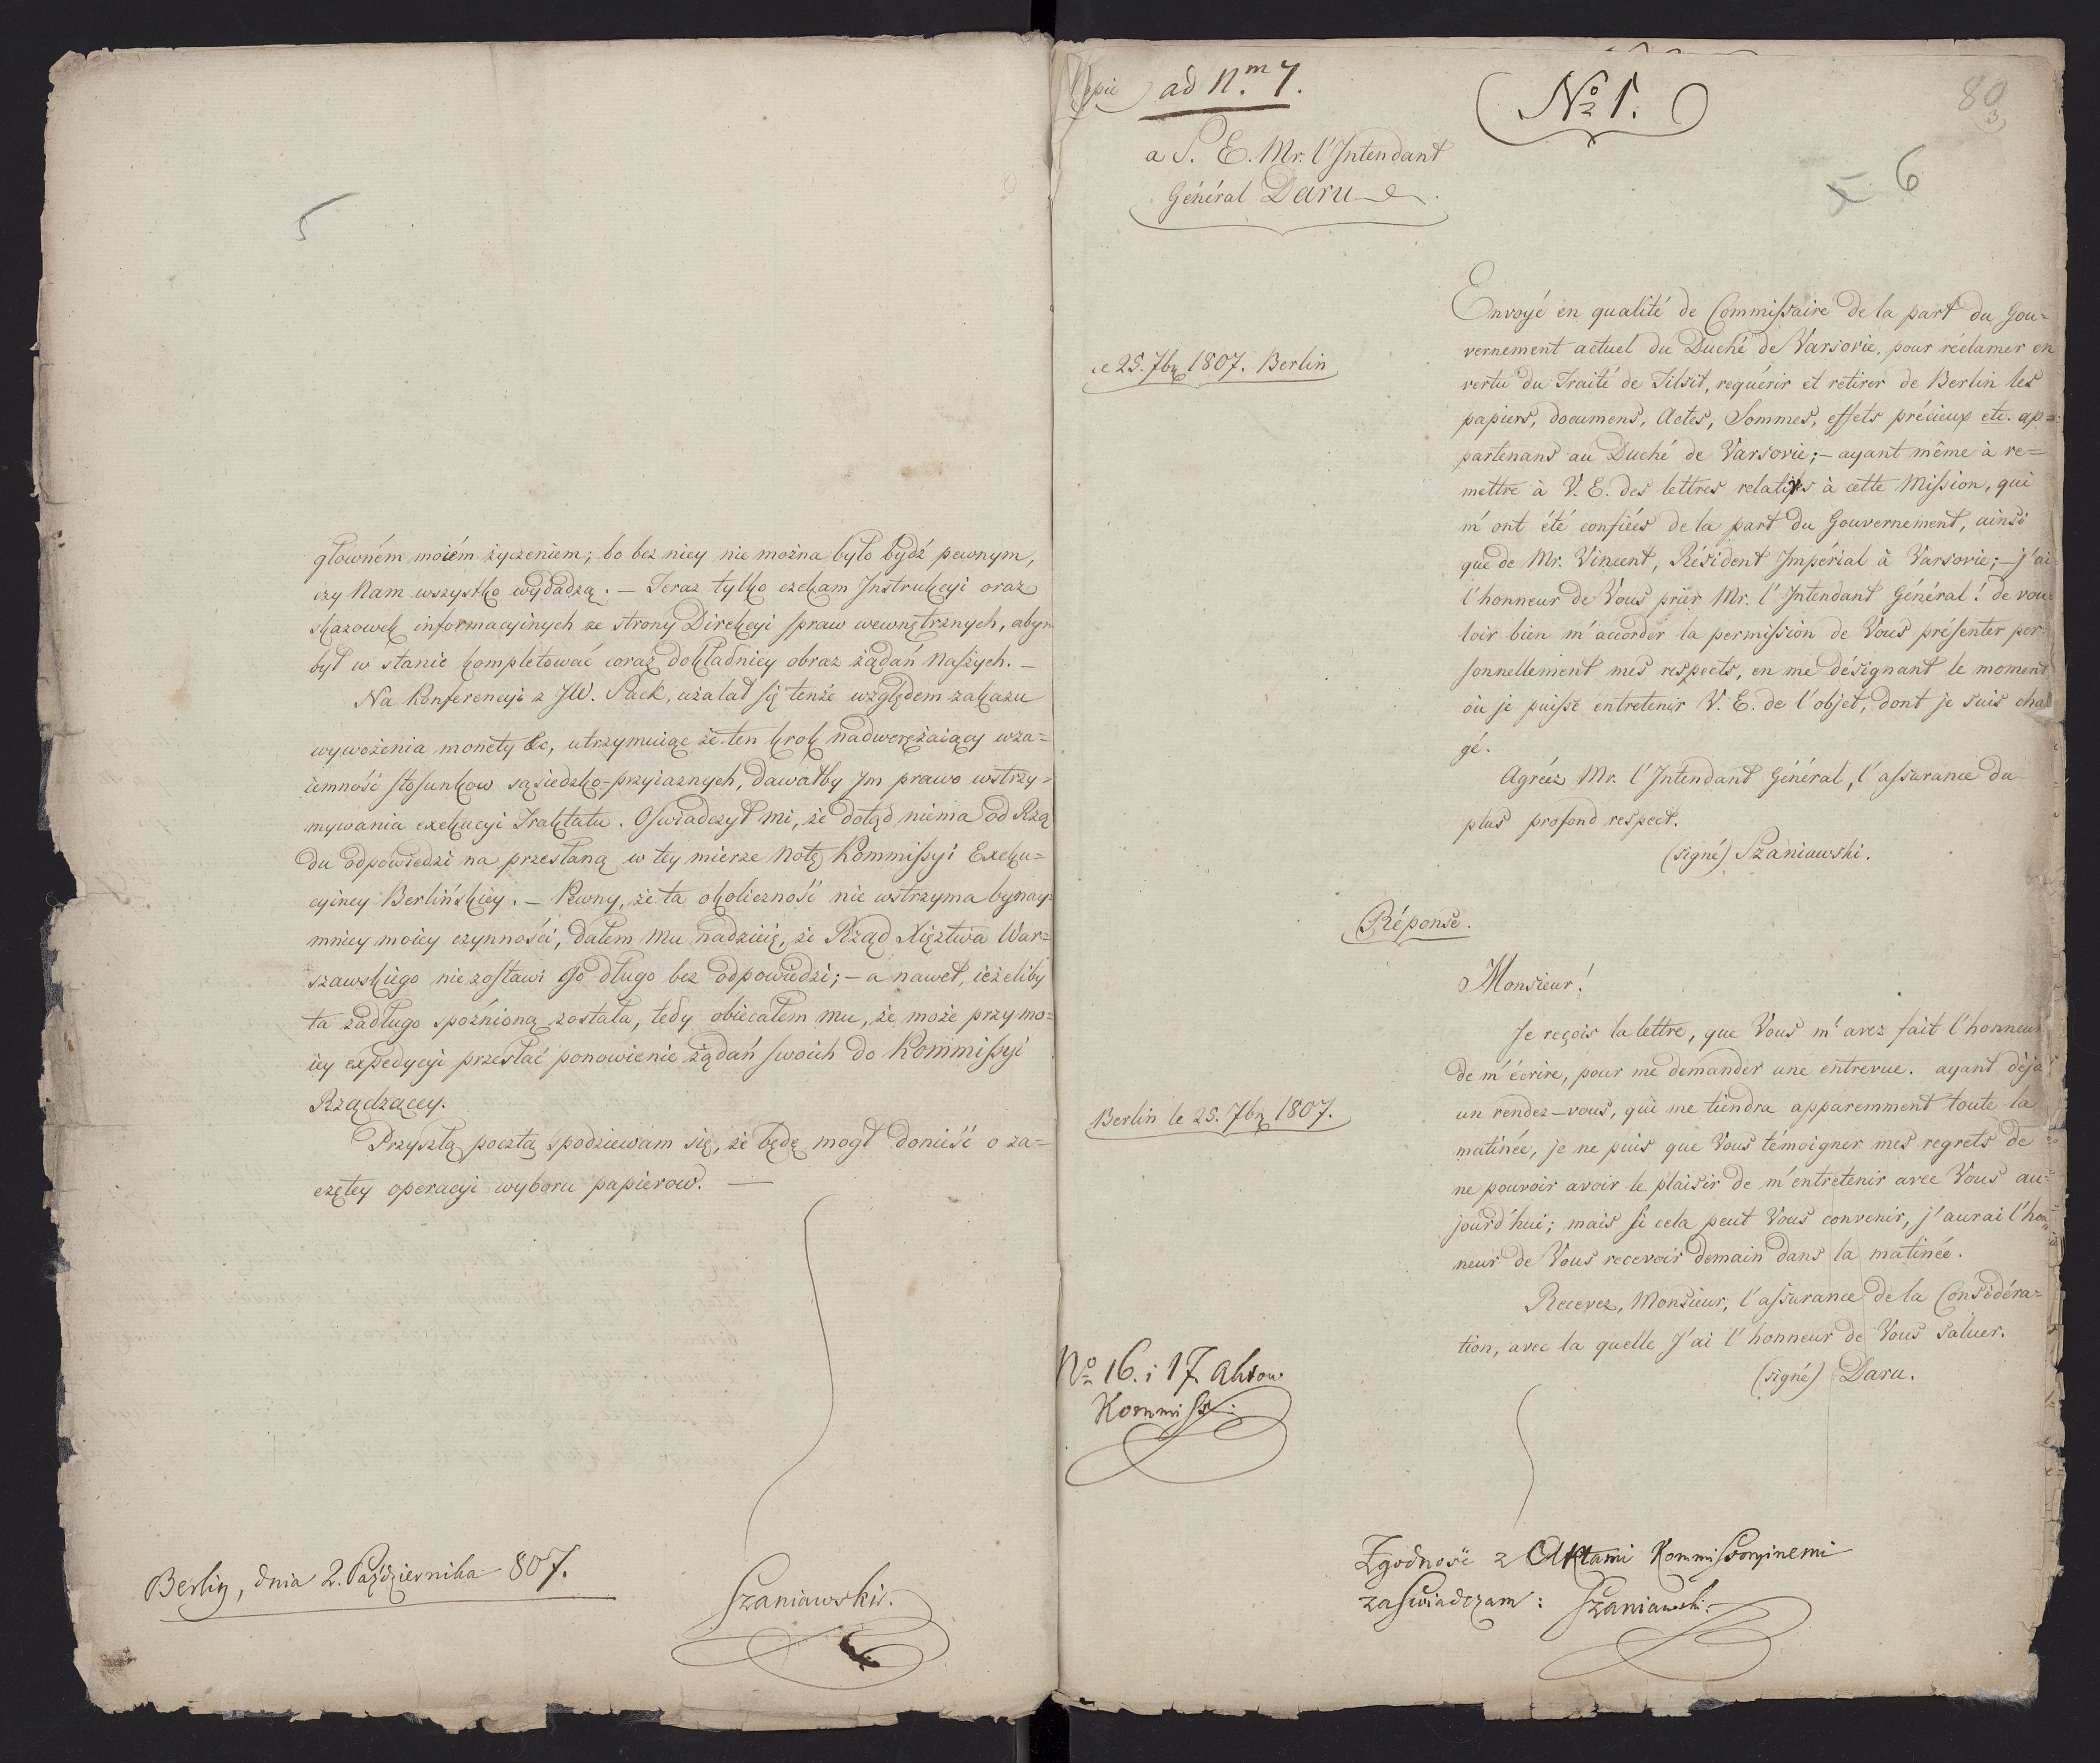 5
główném moiém życzeniem; bo bez niey nie można było bydź pewnym,
czy Nam wszystko wydadzą. — Teraz tylko czekam Instrukcyi oraz
skazowek informacyinych ze strony Direkcyi spraw wewnętrznych, abym
był w stanie kompletować coraz dokładniey obraz żądań naszych. —
Na Konferencyi z JW. Sack, użalał się tenże względem zakazu
wywożenia monety &c, utrzymuiąc że ten krok nadwerężaiący wza=
iemność stosunkow sąsiedzko-przyiaznych, dawałby Im prawo wstrzy=
mywania exekucyi Traktatu. Oswiadczył mi, że dotąd niema od Rzą
du odpowiedzi na przesłaną w tey mierze Notę Kommissyi Exeku=
cyiney Berlińskiey. — Pewny, że ta okoliczność nie wstrzyma bynay=
mniey moiey czynności, dałem mu nadzieię, że Rząd Xięztwa War=
szawskiego nie zostawi Go długo bez odpowiedzi; — a nawet, ieżeliby
ta zadługo spoźnioną została, tedy obiecałem mu, że może przy mo=
iey expedycyi przesłać ponowienie żądań swoich do Kommissyi
Rządzącey.
Przyszłą pocztą spodziewam się, że będę mogł donieść o za=
czętey operacyi wyboru papierow. —
Berlin, dnia 2. Października 807.
Szaniawski.
Copie ad N.m 7.
No 1.
80
3
5 6
a S. E. Mr. l'Intendant
Général Daru
ce 25. 7br 1807. Berlin
Envoyé en qualité de Commissaire de la part du Gou=
vernement actuel du Duché de Varsovie, pour réclamer en
vertu du Traité de Tilsit, requérir et retirer de Berlin les
papiers, documens, Actes, Sommes, effets précieux etc. ap=
partenans au Duché de Varsovie; — ayant même à re=
mettre à V. E. des lettres relatives à cette Mission, qui
m'ont été confiées de la part du Gouvernement, ainsi
que de Mr. Vincent, Résident Impérial à Varsovie; — j'ai
l'honneur de Vous prier Mr. l'Intendant Général! de vou=
loir bien m'accorder la permission de Vous présenter per=
sonnellement mes respects, en me désignant le moment
où je puisse entretenir V. E. de l'objet, dont je suis char
gé.
Agréez Mr. l'Intendant Général, l'assurance du
plus profond respect.
(signé) Szaniawski.
Réponse.
Monsieur!
Berlin le 25. 7br 1807.
Je reçois la lettre, que Vous m'avez fait l'honneur
de m'écrire, pour me demander une entrevue. ayant déja
un rendez-vous, qui me tiendra apparemment toute la
matinée, je ne puis que Vous témoigner mes regrets de
ne pouvoir avoir le plaisir de m'entretenir avec Vous au=
jourd'hui; mais si cela peut Vous convenir, j'aurai l'hon
neur de Vous recevoir demain dans la matinée.
Recevez, Monsieur, l'assurance de la Considéra=
tion, avec la quelle J'ai l'honneur de Vous saluer.
(signé) Daru.
No 16. i 17. Aktow
Kommiss:
Zgodność z Aktami Kommissoryinemi
zaświadczam: Szaniawski.